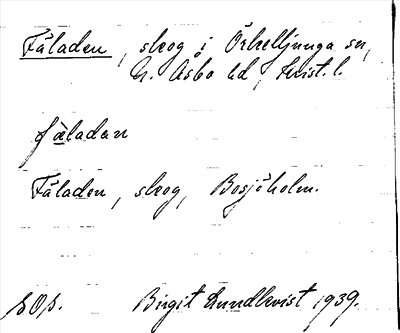 Fäladen, skog i Örkelljunga sn,
N. Åsbo hd, Krist. l.
fàladan
Fäladen, skog, Bosjöholm.
SOS. Birgit Lundkvist 1939.